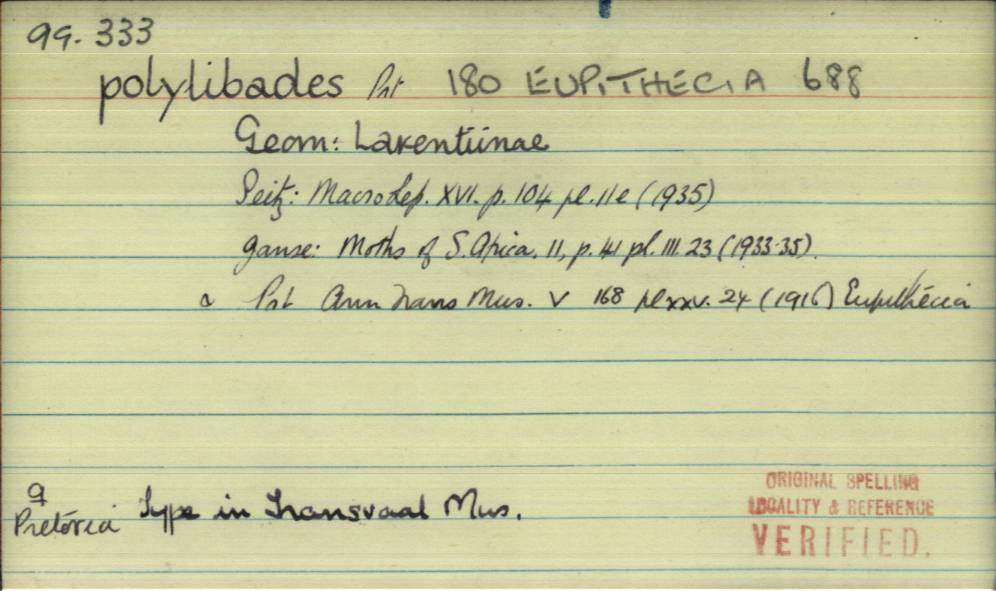 99.333
polylibades Prt 180 EUPITHECIA 688
Geom: Larentiinae
Seitz: MacroLep. XVI. p. 104 pl. 11e (1935)
Janse: Moths of S. Africa, II, p. 41 pl. III. 23 (1933-35).
a Prt Ann Trans Mus. V 168 pl xxv. 24 (1916) Eupithecia
a Type in Transvaal Mus.
Pretoria
ORIGINAL SPELLING
LOCALITY & REFERENCE
VERIFIED.